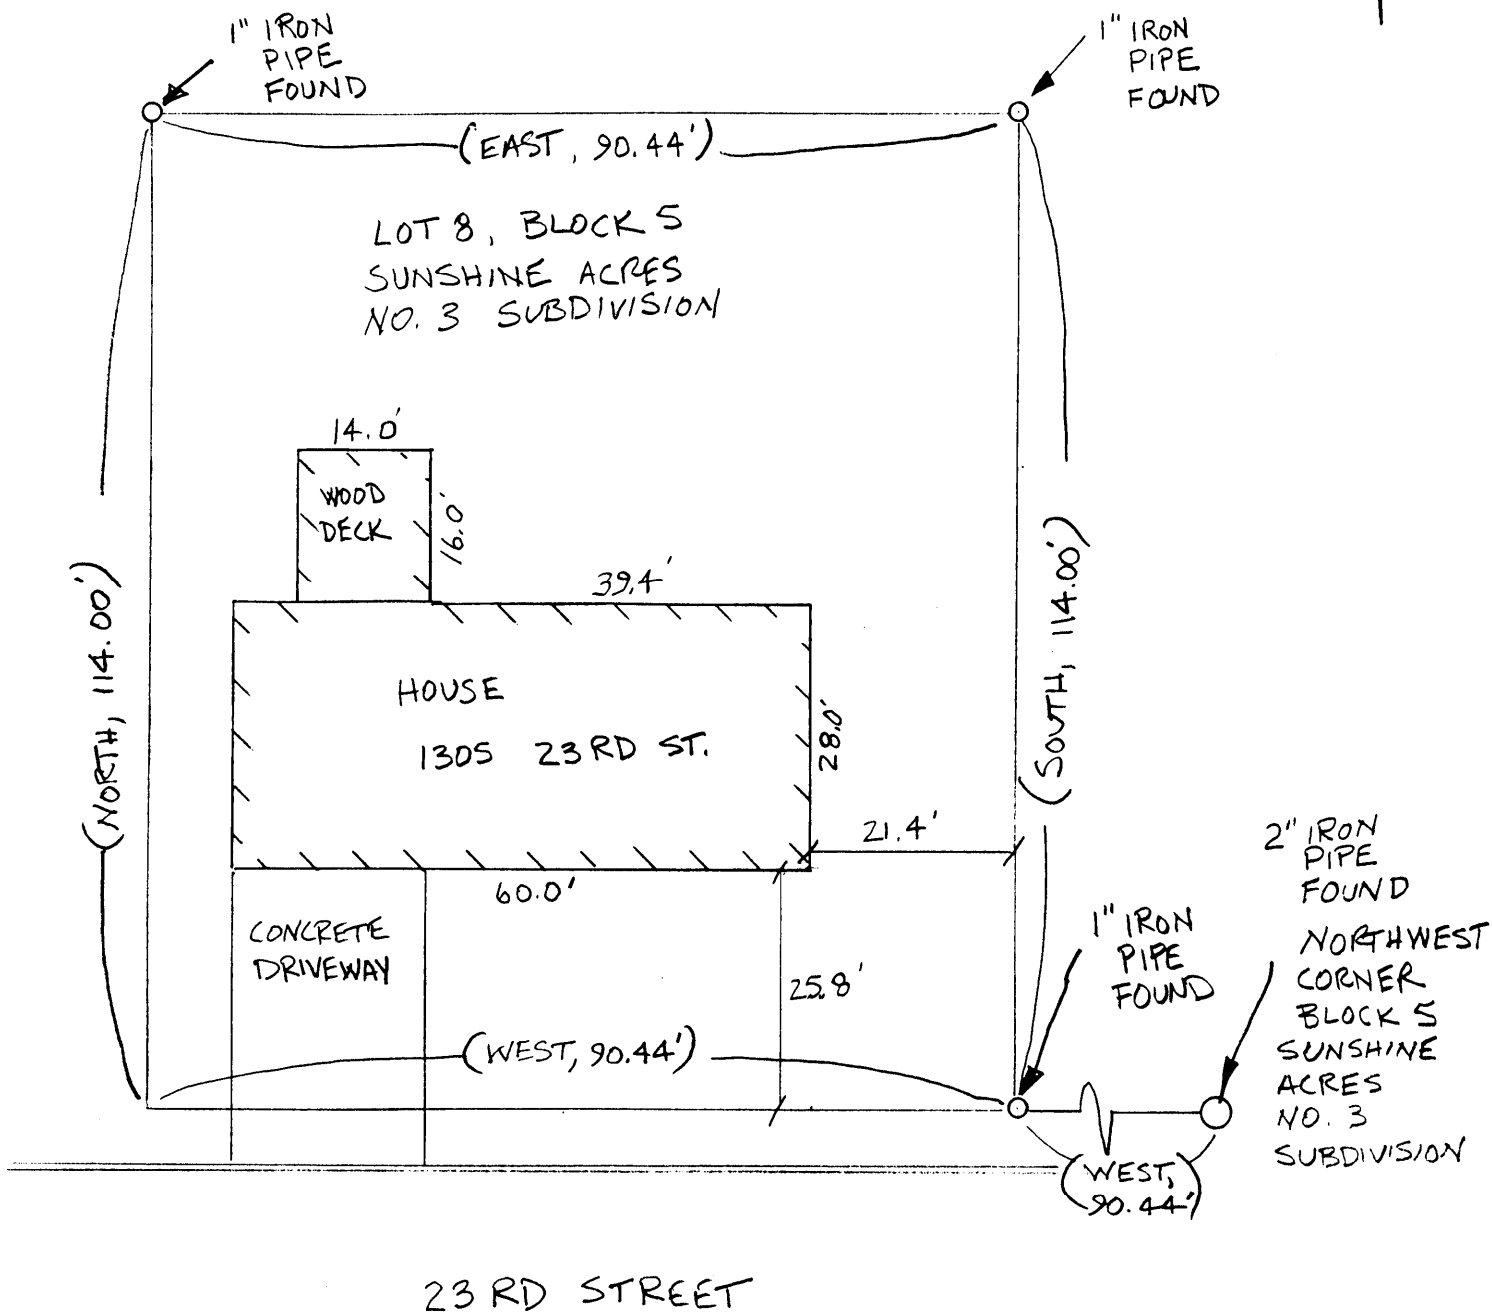 1" IRON
PIPE
FOUND
1" IRON
PIPE
FOUND
(EAST, 90.44')
LOT 8, BLOCK 5
SUNSHINE ACRES
NO. 3 SUBDIVISION
14.0'
WOOD
DECK
16.0'
39.4'
(NORTH, 114.00')
(SOUTH, 114.00')
HOUSE
1305 23RD ST.
28.0'
21.4'
60.0'
CONCRETE
DRIVEWAY
25.8'
(WEST, 90.44')
1" IRON
PIPE
FOUND
2" IRON
PIPE
FOUND
NORTHWEST
CORNER
BLOCK 5
SUNSHINE
ACRES
NO. 3
SUBDIVISION
(WEST,
90.44')
23RD STREET